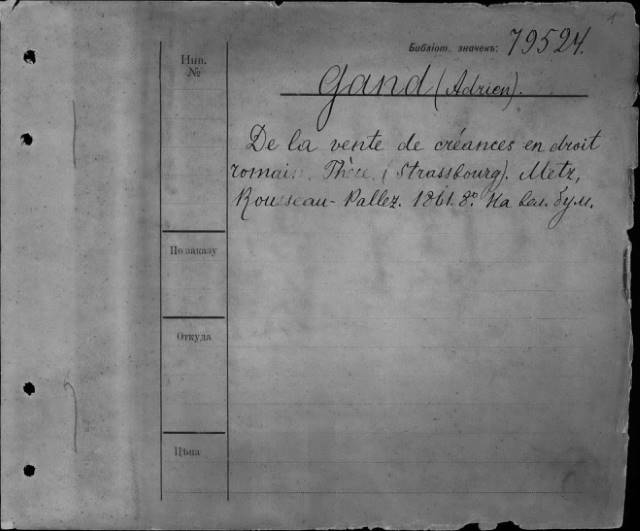 1
Библіот. значекъ: 79524.
Инв.
№
Gand (Adrien).
De la vente de créances en droit
romain. Thèse. (Strassbourg). Metz,
Rousseau-Pallez. 1861. 8º. На вел. бум.
По заказу
Откуда
Цѣна